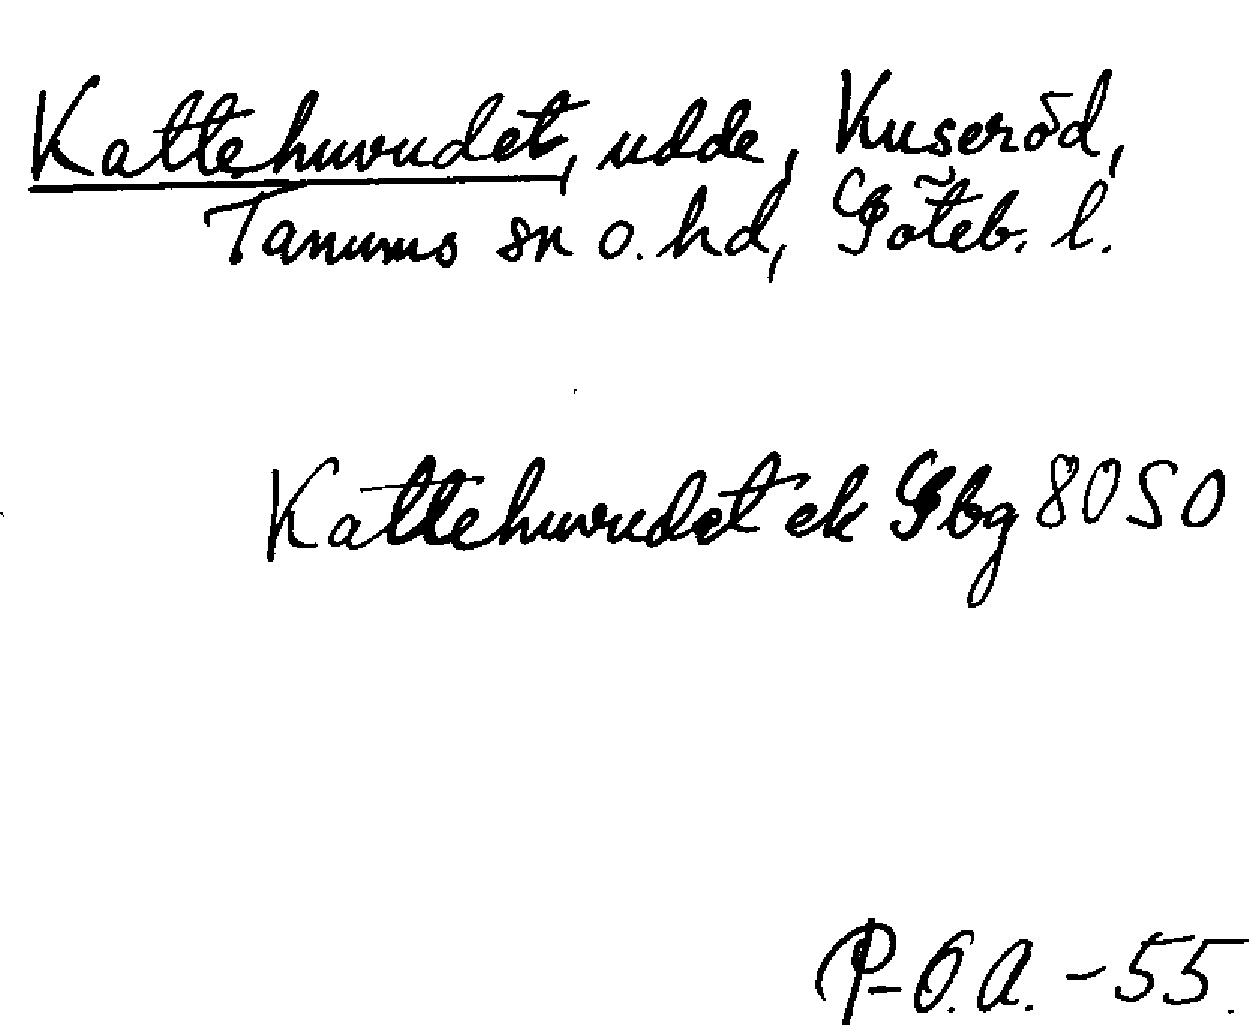 Kattehuvudet, udde, Kuseröd,
Tanums sn o. hd, Göteb. l.
Kattehuvudet ek Gbg 8050
P-O.A. -55.